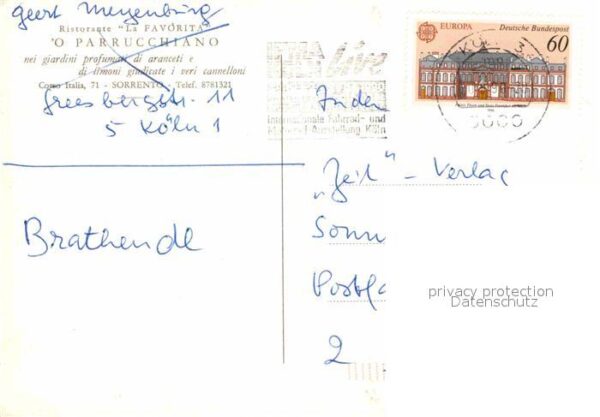 Geert Meyenburg
Ristorante "La FAVORITA"
'O PARRUCCHIANO
nei giardini profumati di aranceti e
di limoni giudicate i veri cannelloni
Corso Italia, 71 - SORRENTO - Telef. 8781321
11
5 Köln 1
Brathendl
live
Internationale Fahrrad- und
Ausstellung Köln
EUROPA
Deutsche Bundespost
60
5000
An den
"Zeit" - Verlag
Sonn
Postfa
2
privacy protection
Datenschutz